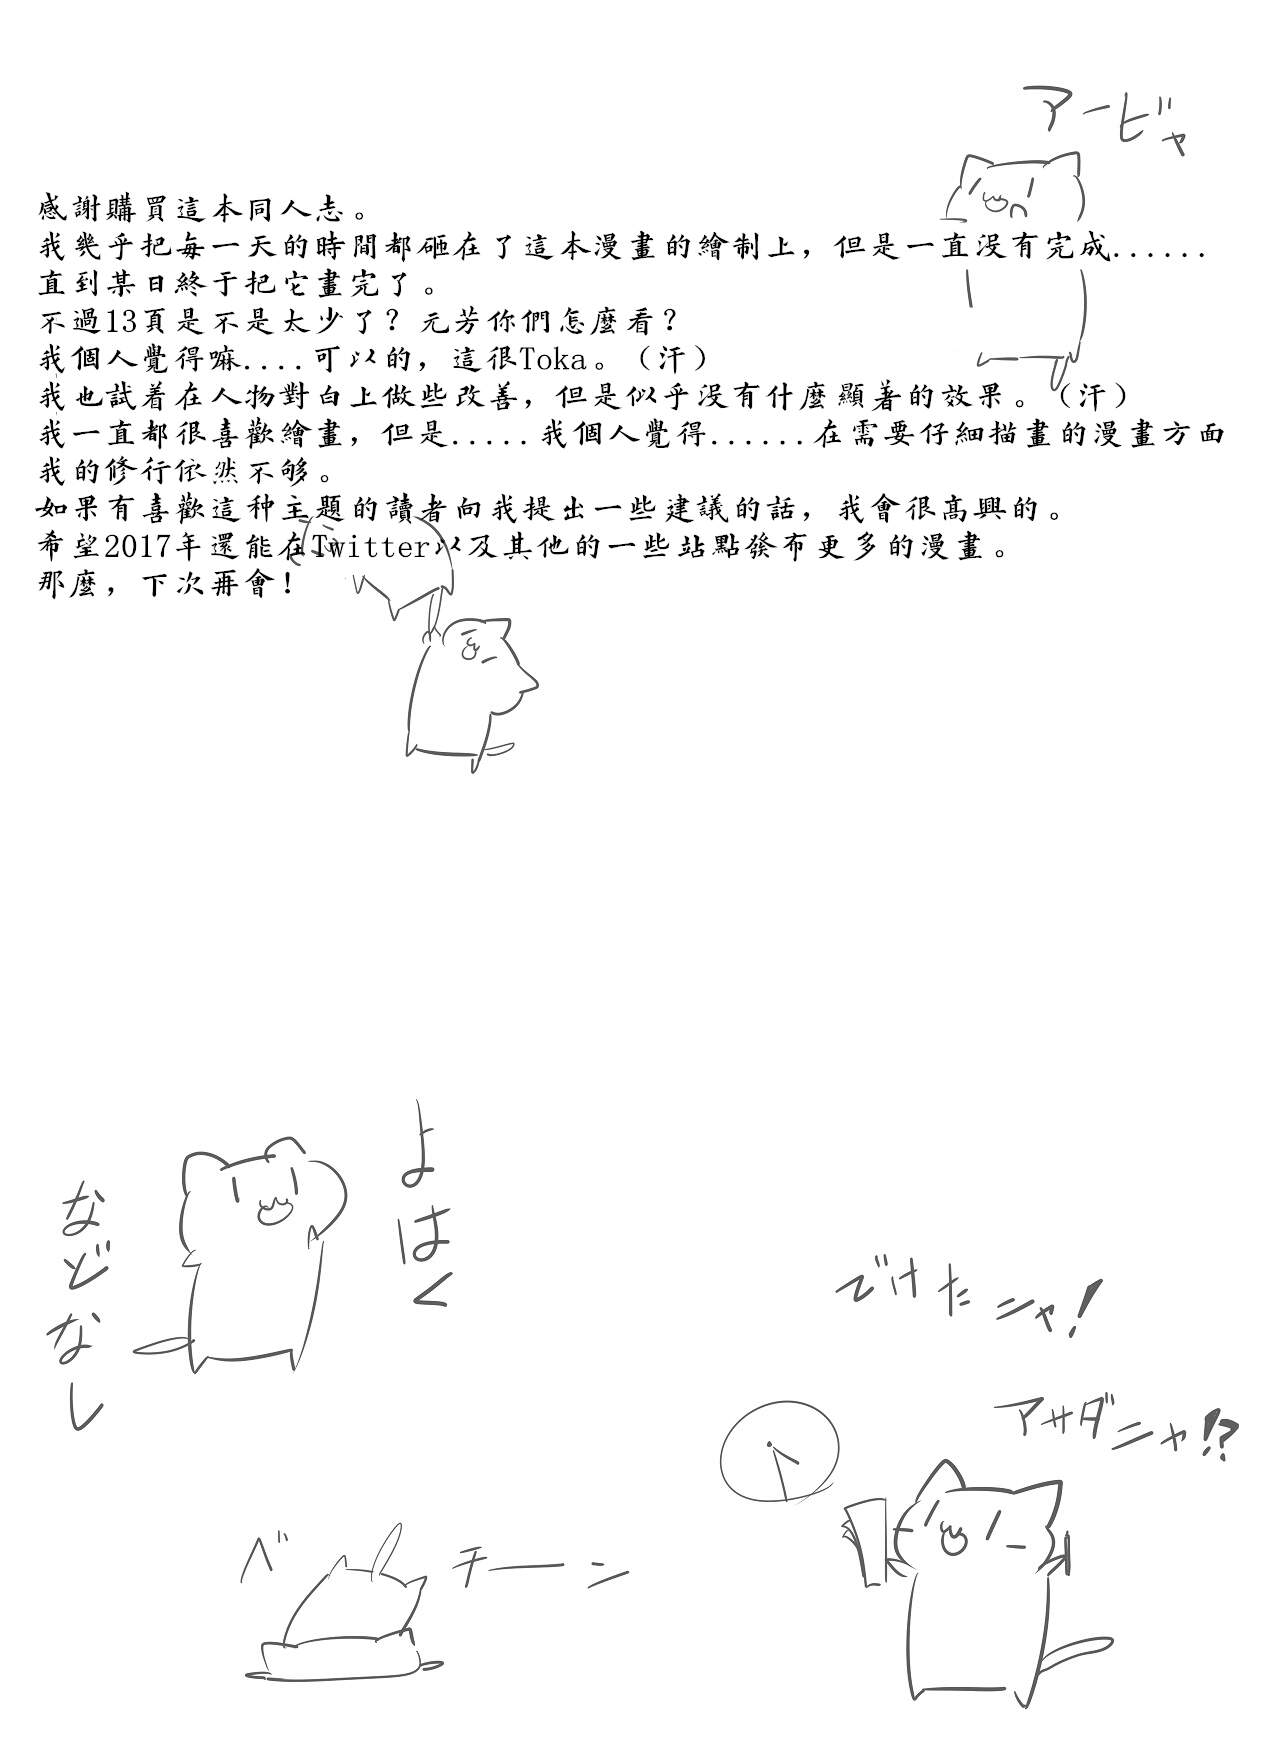 アービャ
感謝購買這本同人志。
我幾乎把每一天的時間都砸在了這本漫畫的繪制上，但是一直没有完成......
直到某日終于把它畫完了。
不過13頁是不是太少了？元芳你們怎麼看？
我個人覺得嘛....可以的，這很Toka。（汗）
我也試着在人物對白上做些改善，但是似乎没有什麼顯著的效果。（汗）
我一直都很喜歡繪畫，但是.....我個人覺得......在需要仔細描畫的漫畫方面
我的修行依然不够。
如果有喜歡這种主題的讀者向我提出一些建議的話，我會很高興的。
希望2017年還能在Twitter以及其他的一些站點發布更多的漫畫。
那麼，下次再會！
よはく
などなし
でけたニャ！
アサダニャ！？
べチーン